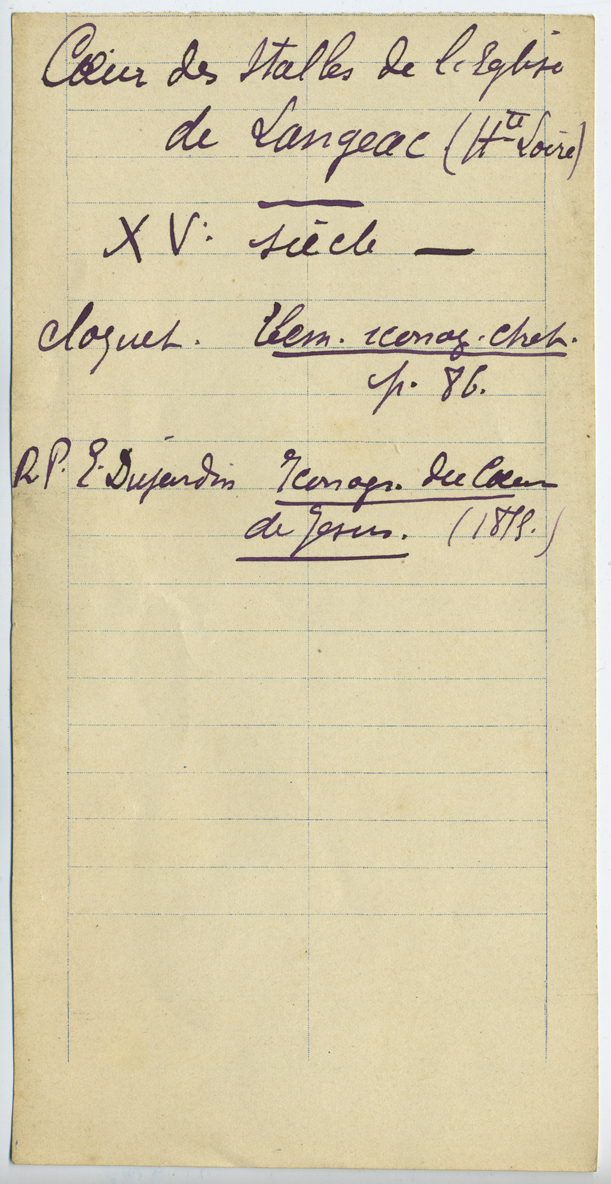 Cœur des Stalles de l'Eglise
de Langeac (Hte Loire)
XVe siècle —
Cloquet. Elem. iconog. chret.
p. 86.
R P. E. Dujardin Iconogr. du Cœur
de Jesus. (1879.)